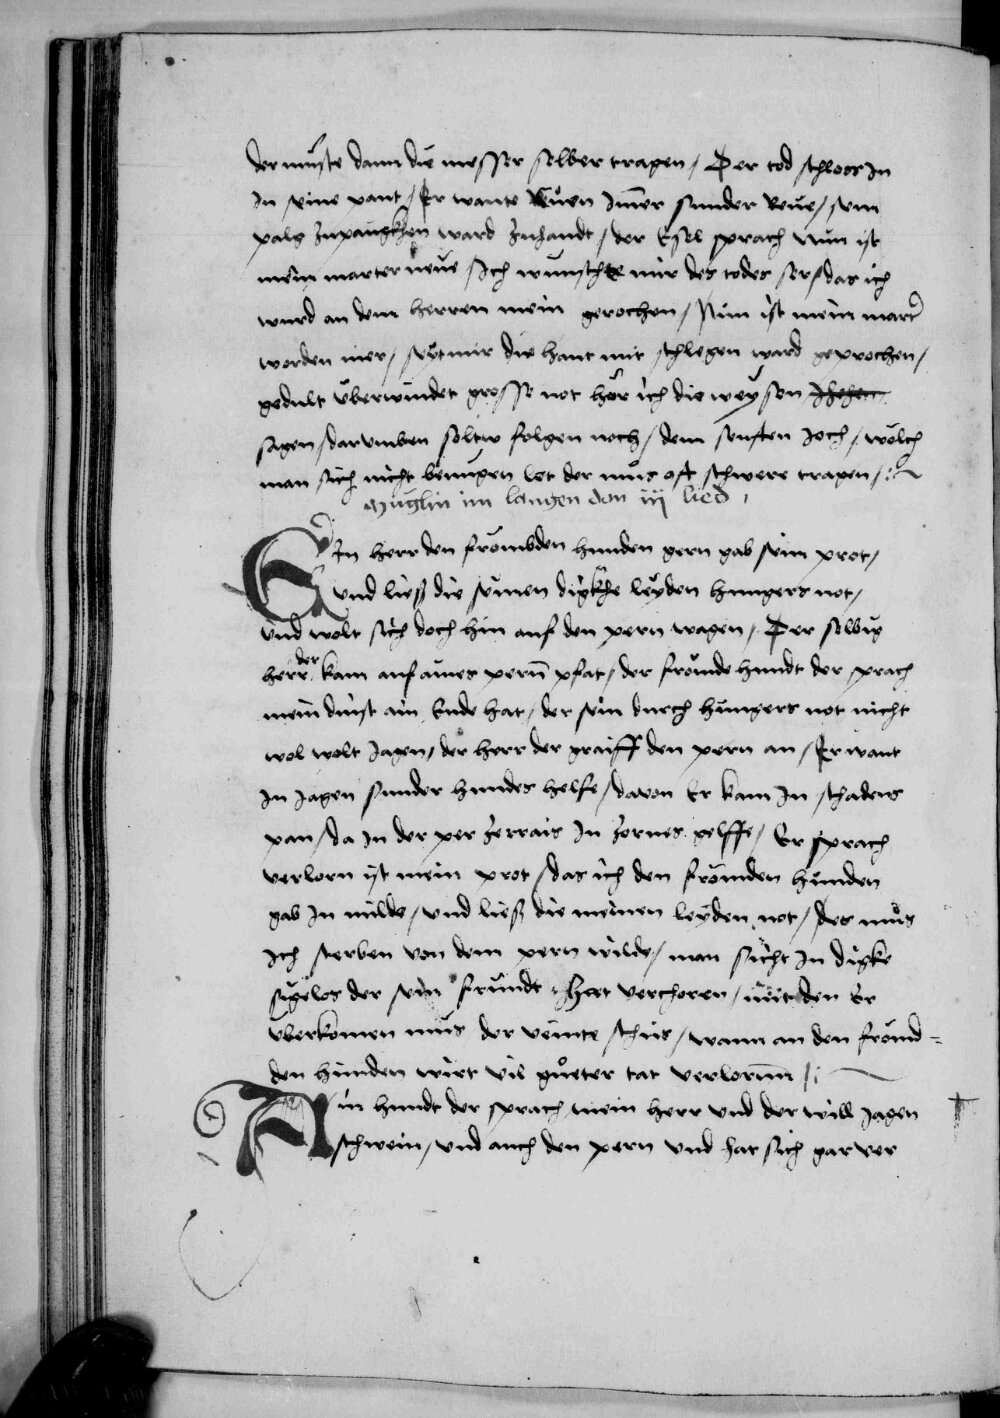 der müste dann die messer selber tragen / Der tod schloss In
In seine pant / Er wante leüen Im̄er sunder Reue / sein
palg zupaugkhen ward zuhandt / der Esel sprach Nun ist
mein marter neue Ich wunschte mir des todes ser / das ich
wurd an dem herren mein gerochen / Nun ist mein mart
worden mer / seÿt mir die haut mit schlegen ward geprochen /
gedult überwindet grosse not hör ich die weÿsen
sagen / darumben soltu folgen noch / dem senften Joch / wölch
man sich nicht benügen let der můs oft schwere tragen /
Müglin im langen don iij lied
Ein herr den frömbden hunden gern gab sein prot /
und liesß die seinen digkhe leÿden hungers not /
und wolt sich doch hin auf den pern wagen / Der selbig
herr der kam auf aines pern pfat / der frömde hundt der sprach
mein dinst ain Ende hat / der sein durch hungers not nicht
wol wolt Jagen / der herr der graiff den pern an / Er want
In Jagen sunder hundes helfe / davon Er kam In schadens
pan / da In der per zerrais In zornes gelffe / Er sprach
verlorn ist mein prot / das ich den frömden hunden
gab In milde / und liesß die meinen leÿden not / des můs
Ich sterben von dem pern wilde / man sicht In digke
sigelos der sein fründt hat verchoren / mit den Er
überkomen můs der veinte schus / wann an den frömd=
den hunden wirt vil gůeter tat verlorenn /
Ain hundt der sprach mein herr und der will Jagen
schwein / und auch den pern und hat sich gar ver